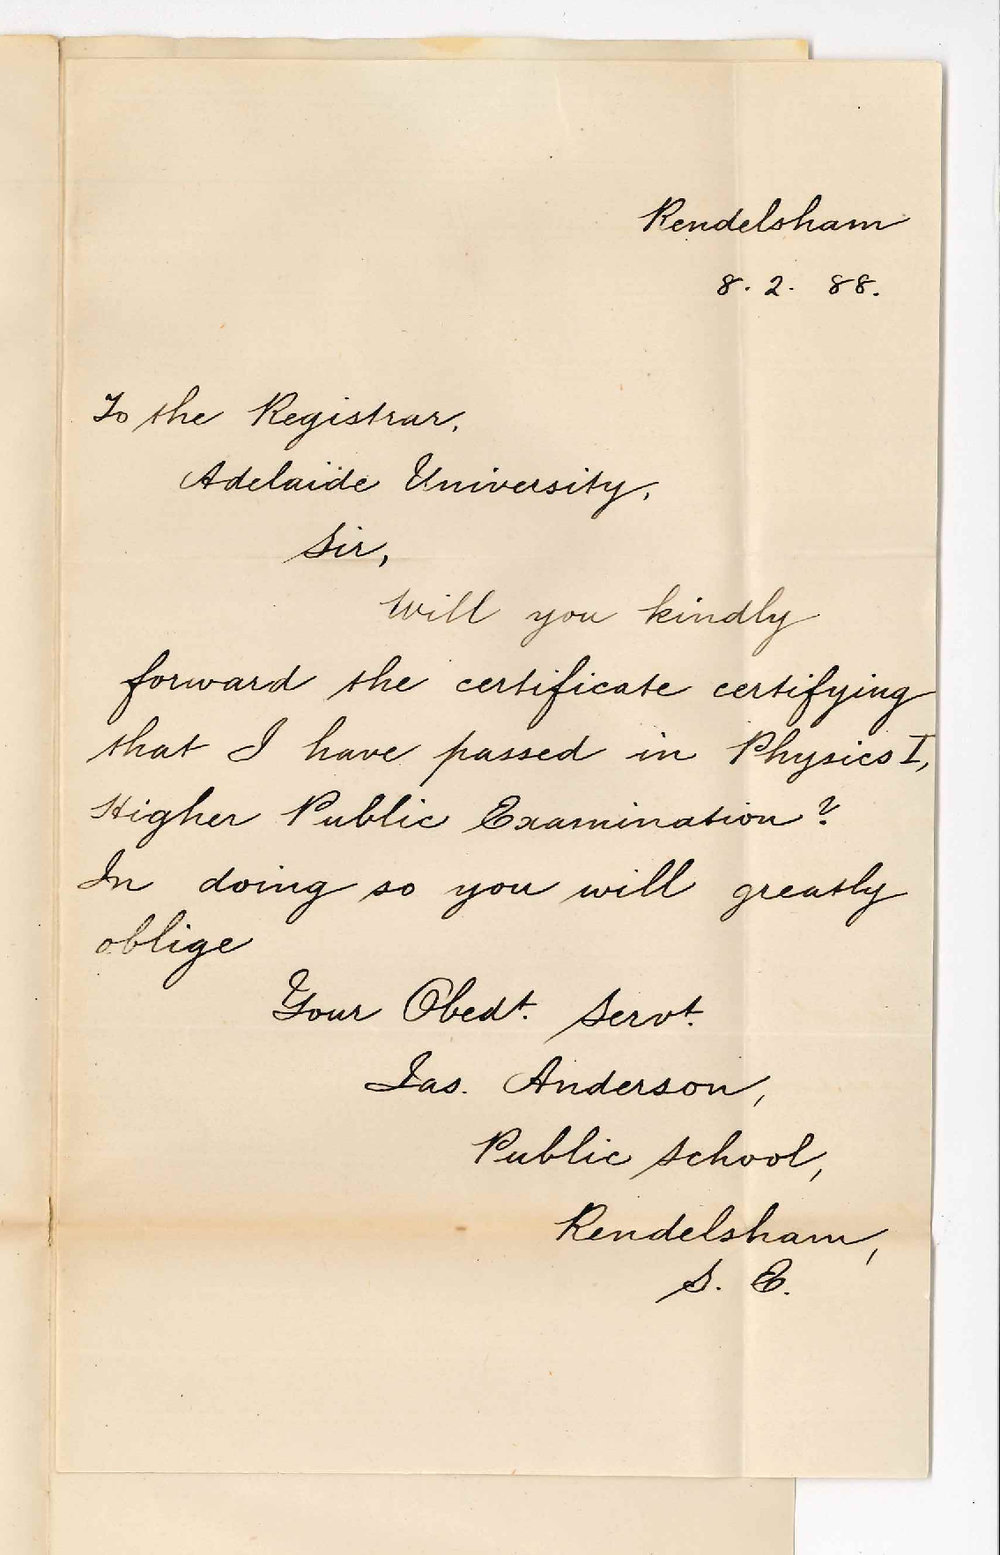 Rendelsham
8. 2. 88.
To the Registrar,
Adelaide University,
Sir,
Will you kindly
forward the certificate certifying
that I have passed in Physics I,
Higher Public Examination?
In doing so you will greatly
oblige
Your Obedt. Servt.
Jas. Anderson,
Public School,
Rendelsham,
S. E.